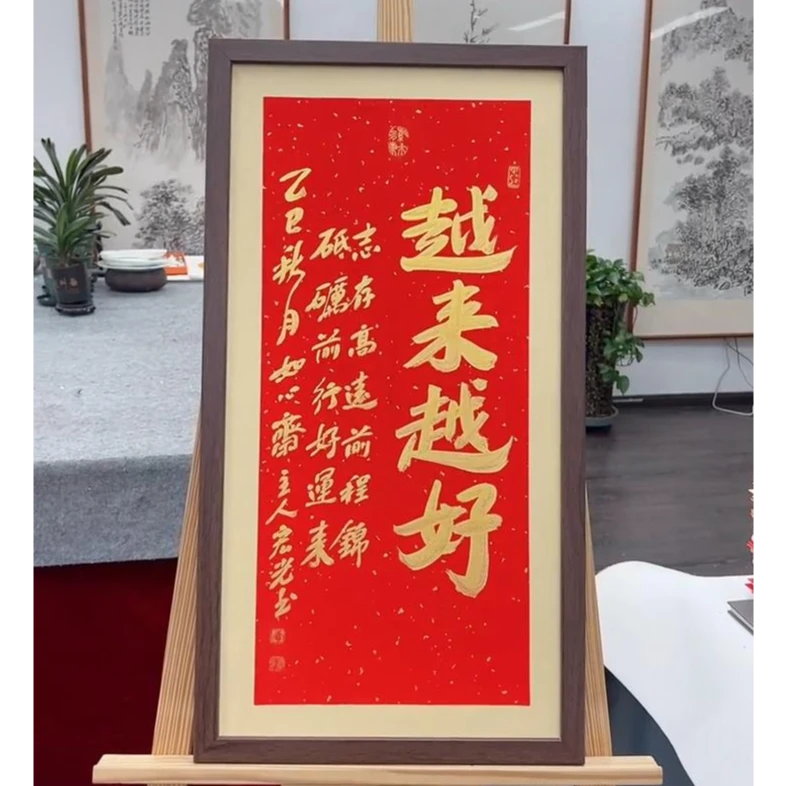 越来越好
志存高远前程錦
砥礪前行好運来
乙巳秋月如心齋主人宏光书